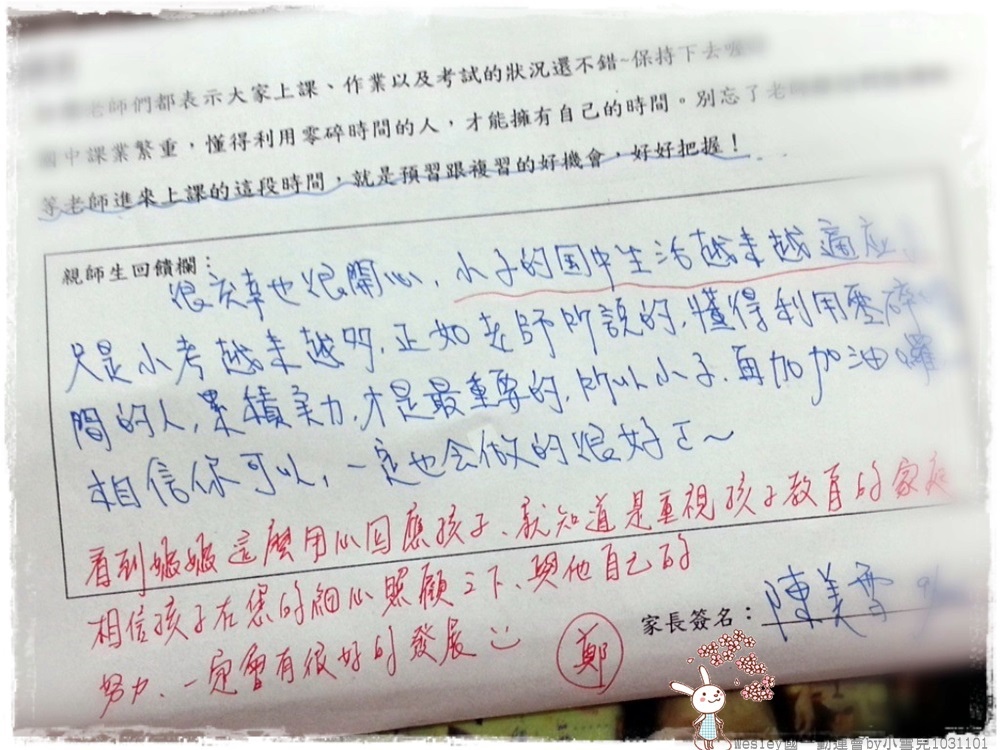 老師們都表示大家上課、作業以及考試的狀況還不錯~保持下去喔
國中課業繁重，懂得利用零碎時間的人，才能擁有自己的時間。別忘了老師
等老師進來上課的這段時間，就是預習跟複習的好機會，好好把握！
親師生回饋欄：
很慶幸也很開心，小子的国中生活越來越適应
只是小考越來越多，正如老師所說的，懂得利用零碎時
間的人，累積实力，才是最重要的，所以小子，再加加油囉
相信你可以，一定也会做的很好ㄛ～
看到媽媽這麼用心回應孩子、就知道是重視孩子教育的家庭
相信孩子在您的細心照顧之下、與他自己的
努力、一定會有很好的發展
鄭
家長簽名：陳美雪 9/
Wesley國一動運會by小雪兒1031101